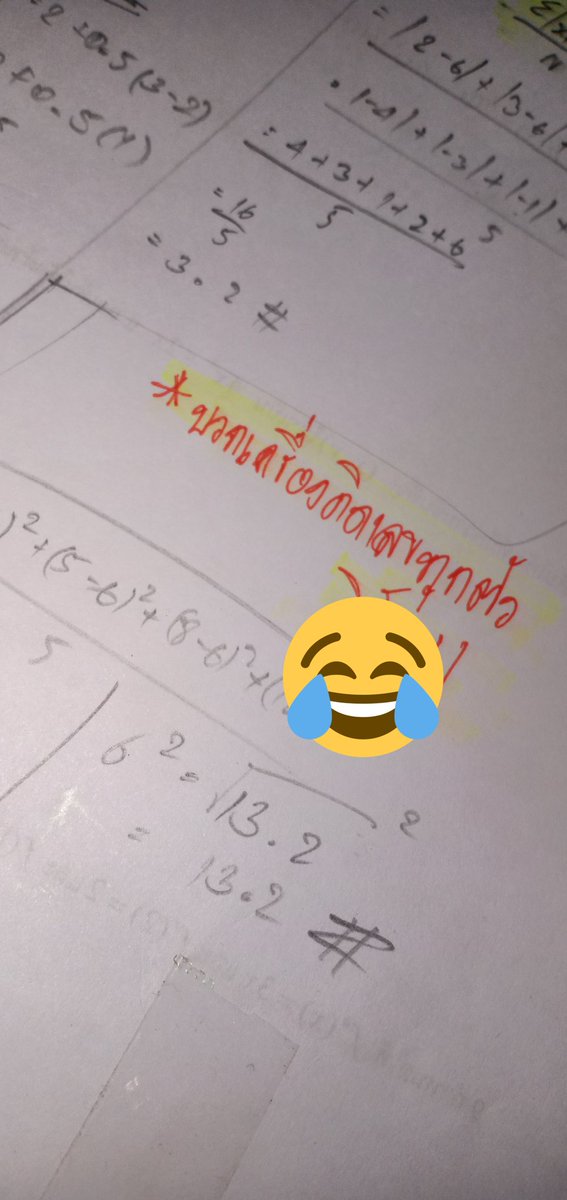 =2+0.5(3-2)
+0.5(1)
Σ|x
N
= |2-6|+|3-6|+
|-4|+|-3|+|-1|+
5
= 4+3+1+2+6
5
= 16
5
= 3.2 #
*บวกเครื่องคิดเลขทุกตัว
)²+(5-6)²+(8-6)²+(1
5
6² = √13.2 ²
= 13.2 #